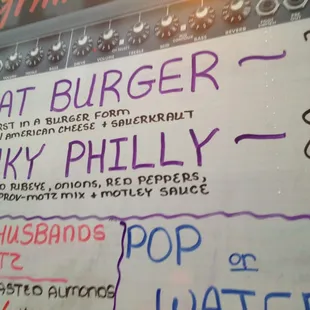 AT BURGER
RST IN A BURGER FORM
AMERICAN CHEESE + SAUERKRAUT
KY PHILLY
RIBEYE, ONIONS, RED PEPPERS,
PROV-MOTZ MIX + MOTLEY SAUCE
HUSBANDS
TZ
ASTED ALMONDS
POP or
WATER